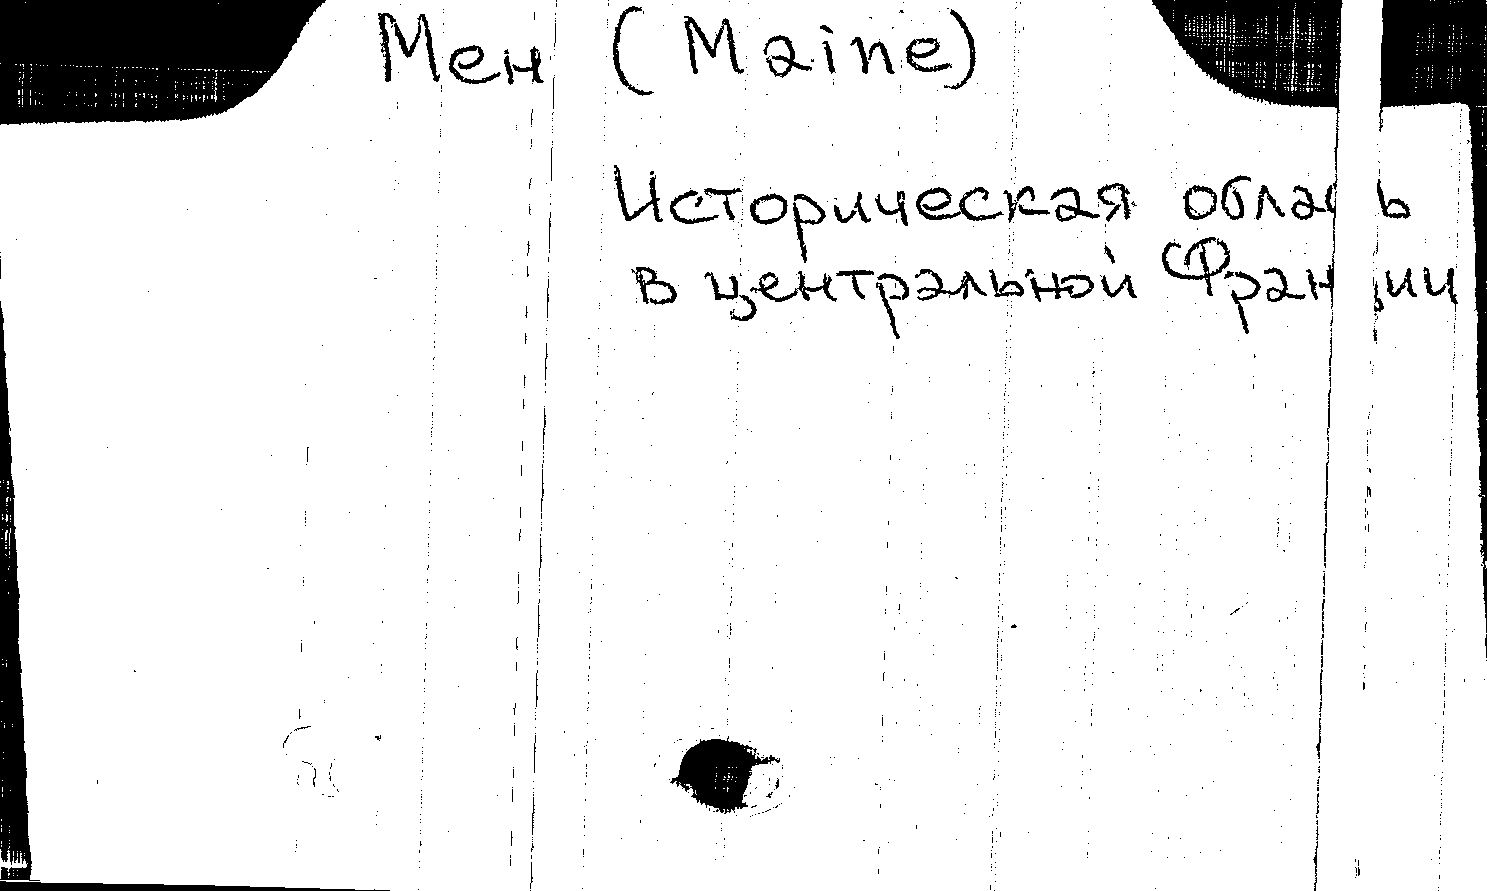 Мен (Maine)
Историческая область
в центральной Франции